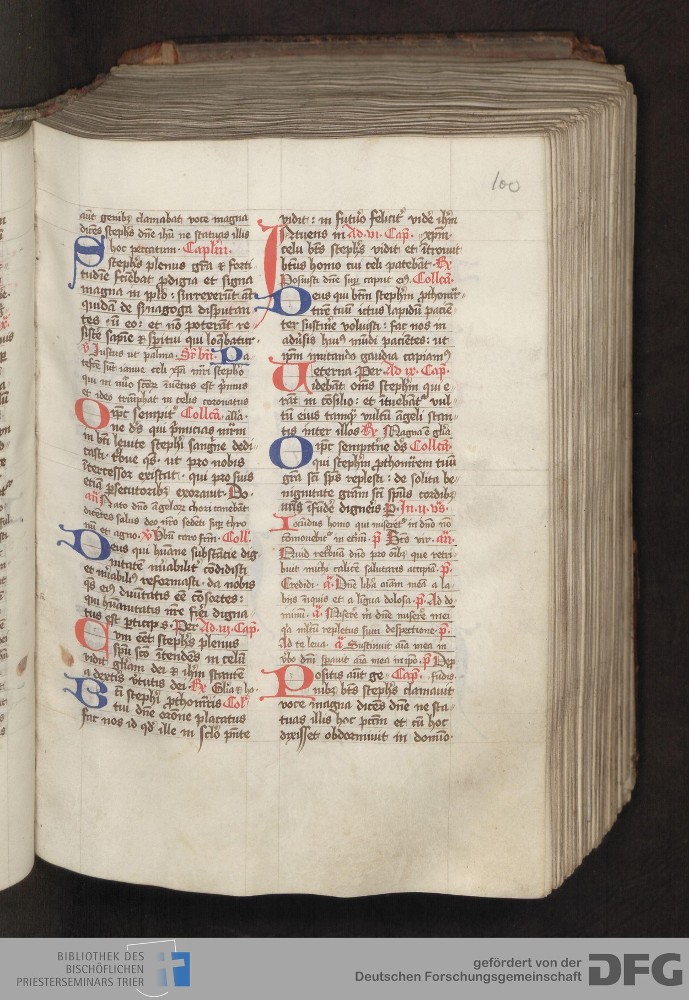 100
aūt genibꝫ clamabat voce magna
dicēs stephꝰ dn̄e ihū ne statuas illis
hoc peccatum · Caplm̄ ·
Stephꝰ plenus gr̄a ⁊ forti
tudīe faciebat ꝓdigia et signa
magna in pplo : surrexerūt aūt
quidā de sinagoga disputan
tes · eo : et nō poterāt re
sistē sapiē ⁊ spiritu qui loq̄batur ·
Justus ut palma · Pa
tefcē sūt ianue celi xp̄i mr̄i stepho
qui in nūo inuētus est pmus
et ideo triūphat in celis coronatus
Oīpc̄ sempit̄ Collcā
ne dꝰ qui pmicias mr̄m
in bti leuite stephi sangne dedi
casti · ut pro nobis
intercessor existat · qui pro suis
etiā ꝑsecutoribꝫ exorauit · Do ·
Nato dn̄o āgeloꝝ chori canebāt
dicētes salus deo nr̄o sedēti suꝑ thro
nū et agno · Vbū caro fcm̄ · Coll
Deus qui huāne substācie dig
nitatē mirabilitˀ cōdidisti
et mirabiliꝰ reformasti · da nobis
eiꝰ diuitatis eē cōsortes :
qui hūanitatis nr̄e fieri digna
tus est pticeps · Per Ad · iii · Cap ·
Cum eēt stephꝰ plenus
spū sc̄o ītendēs in celū
vidit gliam dei ⁊ ihm̄ stantē
a dextis vtutis dei Rx Glīa ⁊ ho ·
Bti stephi ꝓthomris Coll
tui dn̄e orōne placatus
fac nos id qd ille in sclo pn̄te
vidit : in futuro felicitˀ vidē ihm̄
Intuens in Ad · vi · Cap · xpm̄ ·
celū bt̄s stephꝰ vidit et ītrouit
btūs homo cui celi patebāt · Rx
Posuisti dn̄e suꝑ caput eiꝰ · Collcā ·
Deus qui btm̄ stephm̄ ꝓthomr̄
tirē tuū ictus lapidū paciē
ter sustinē voluisti : fac nos in
adūsis huiꝰ mūdi paciētes : ut
ipm̄ imitando gaudia capiamꝰ
eterna · Per · Ad ix · Cap ·
Videbāt om̄s stephm̄ qui e
rāt in cōsilio : et ītuebātˀ vul
tū eius tamqͣ vultū āgeli stan
tis inter illos Rx Magna ē glīa
Oīpc̄ sempitne dꝰ Collcā ·
qui stephm̄ ꝓthomrem tuū
gr̄a sc̄i spꝰ replesti : de solita be
nignitate gr̄am sc̄i spūs cordibꝫ
nr̄is īfūdē digneris · P · In · ii · vs ·
Iocūdus homo qui miseretˀ in dn̄o nō
cōmouebitˀ in etnū · p̄ Btꝰ vir · an̄ ·
Quid retbuā dn̄o pro oībꝫ que retri
buit michi calicē salutaris accipiā · p̄ ·
Credidi · a · Dn̄e libā aīam meā a la
biis īiquis et a līgua dolosa · p̄ · Ad do
minū · a · Misere m̄ dn̄e misere mei
qͣ mltū repletus sum despectione · p̄ ·
Ad te leua · a · Sustinuit aīa mea in
vbo dn̄i spauit aīa mea in ipo · p̄ · Dep
Positis aūt ge · Cap · fūdis ·
nibꝫ bt̄s stephꝰ clamauit
voce magna dicēs dn̄e ne sta
tuas illis hoc pctm̄ et cū hoc
dixisset obdormiuit in domīo ·
BIBLIOTHEK DES
BISCHÖFLICHEN
PRIESTERSEMINARS TRIER
gefördert von der
Deutschen Forschungsgemeinschaft DFG